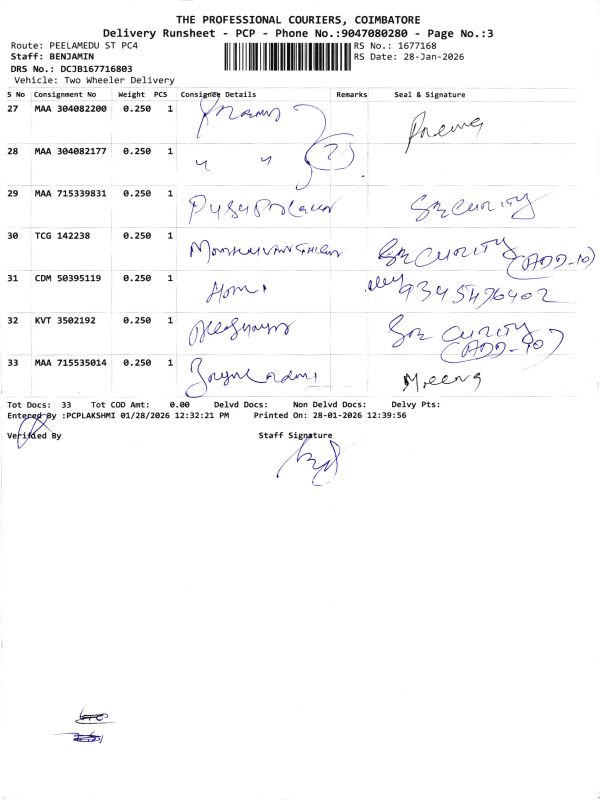 THE PROFESSIONAL COURIERS, COIMBATORE
Delivery Runsheet - PCP - Phone No.:9047080280 - Page No.:3
Route: PEELAMEDU ST PC4 RS No.: 1677168
Staff: BENJAMIN RS Date: 28-Jan-2026
DRS No.: DCJB167716803
Vehicle: Two Wheeler Delivery
S No Consignment No Weight PCS Consignee Details Remarks Seal & Signature
27 MAA 304082200 0.250 1
28 MAA 304082177 0.250 1 " "
29 MAA 715339831 0.250 1 Security
30 TCG 142238 0.250 1 Security (ADD-10)
31 CDM 50395119 0.250 1 9345476402
32 KVT 3502192 0.250 1 Security (ADD-10)
33 MAA 715535014 0.250 1 Meena
Tot Docs: 33 Tot COD Amt: 0.00 Delvd Docs: Non Delvd Docs: Delvy Pts:
Entered By :PCPLAKSHMI 01/28/2026 12:32:21 PM Printed On: 28-01-2026 12:39:56
Verified By Staff Signature